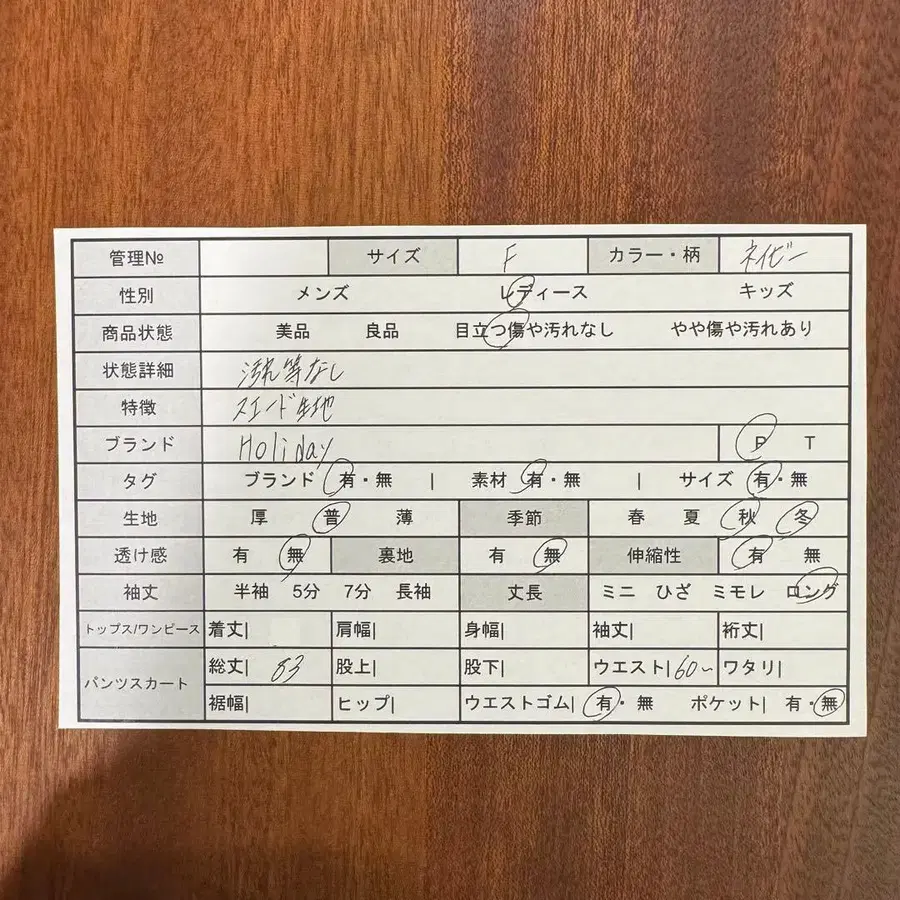 管理№ サイズ F カラー・柄 ネイビー
性別 メンズ レディース キッズ
商品状態 美品 良品 目立つ傷や汚れなし やや傷や汚れあり
状態詳細 汚れ等なし
特徴 スエード生地
ブランド Holiday P T
タグ ブランド 有・無 | 素材 有・無 | サイズ 有・無
生地 厚 普 薄 季節 春 夏 秋 冬
透け感 有 無 裏地 有 無 伸縮性 有 無
袖丈 半袖 5分 7分 長袖 丈長 ミニ ひざ ミモレ ロング
トップス/ワンピース 着丈| 肩幅| 身幅| 袖丈| 裄丈|
パンツスカート 総丈| 83 股上| 股下| ウエスト| 60~ ワタリ|
裾幅| ヒップ| ウエストゴム| 有・無 ポケット| 有・無